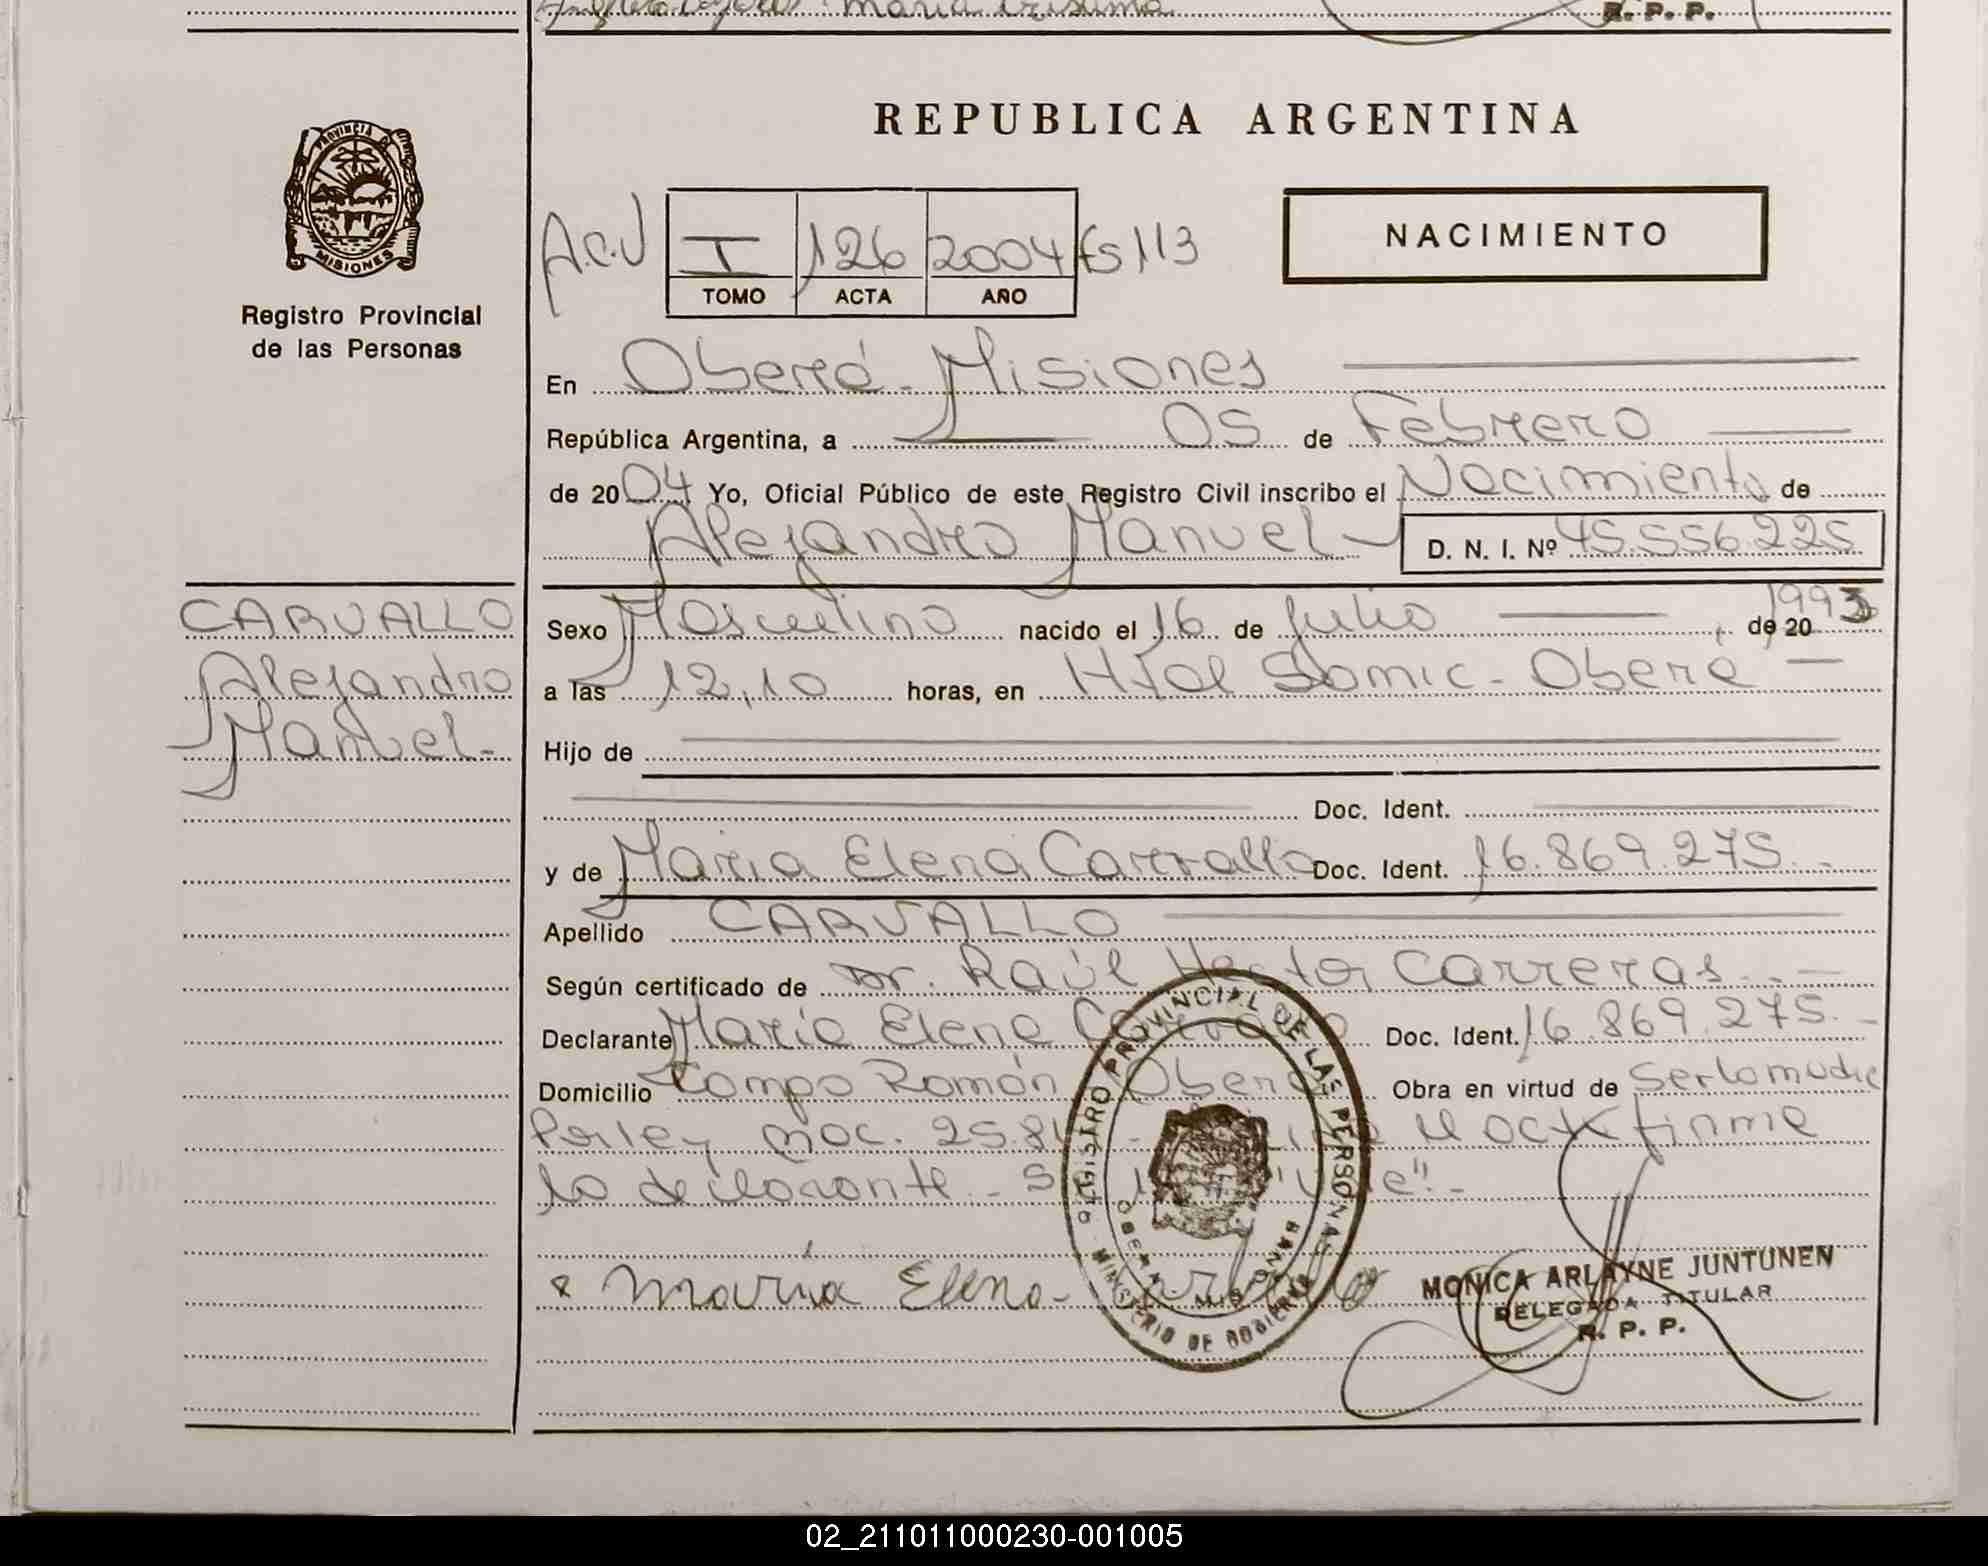 María Cristina
R. P. P.
PROVINCIA DE
MISIONES
Registro Provincial
de las Personas
REPUBLICA ARGENTINA
NACIMIENTO
A.C.V I 126 2004 fs 113
TOMO ACTA AÑO
En Oberá - Misiones
República Argentina, a 05 de Febrero
de 2004 Yo, Oficial Público de este Registro Civil inscribo el Nacimiento de
Alejandro Manuel D. N. I. Nº 45.556.225
CARVALLO
Alejandro
Manuel-
Sexo Masculino nacido el 16 de Julio de 20 1993
a las 12,10 horas, en Htal Samic - Oberá
Hijo de
Doc. Ident.
y de María Elena Carvallo Doc. Ident. 16.869.275.-
Apellido CARVALLO
Según certificado de Dr. Raúl Hector Carreras.-
Declarante María Elena Doc. Ident. 16.869.275.-
Domicilio Campo Ramón Oberá Obra en virtud de ser la madre
Por ley nac. firma
la declarante - "Vale".-
María Elena
REGISTRO PROVINCIAL DE LAS PERSONAS
MINISTERIO DE GOBIERNO
OBERA
MONICA ARLAYNE JUNTUNEN
DELEGADA TITULAR
R. P. P.
02_211011000230-001005